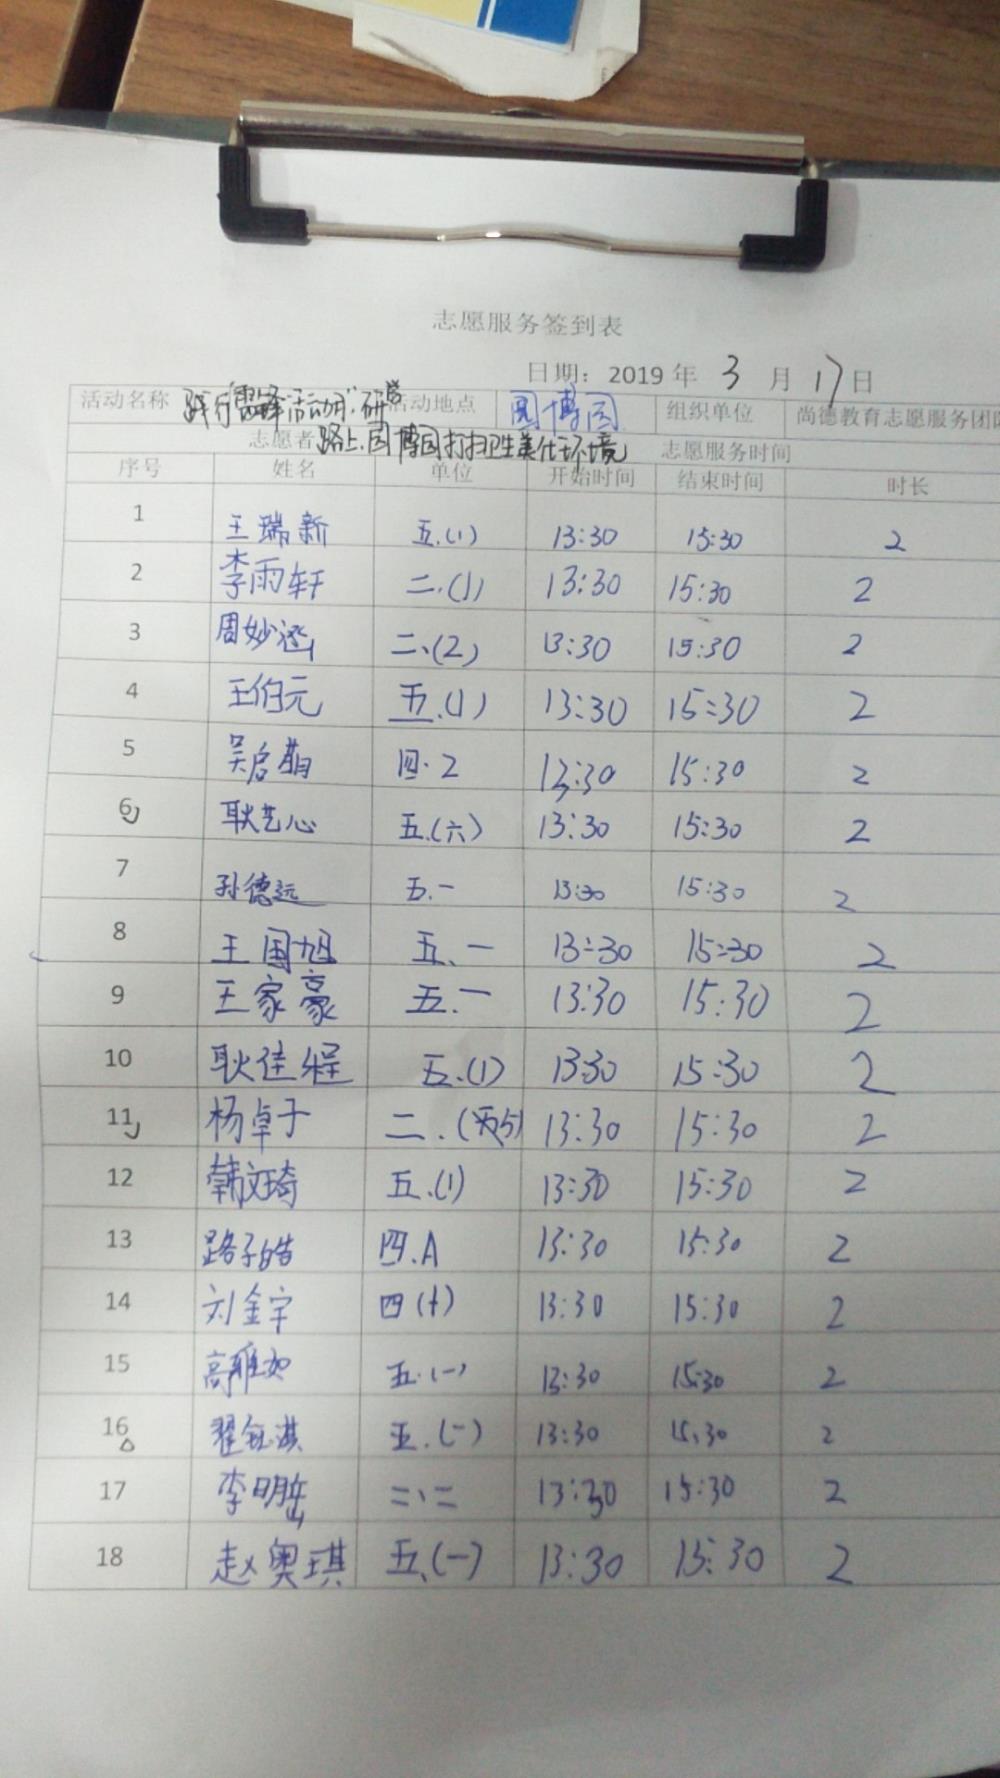 志愿服务签到表
日期：2019年 3月 17日
活动名称 践行"雷锋活动月"，研学 活动地点 园博园 组织单位 尚德教育志愿服务团队
路上，园博园打扫卫生美化环境
志愿者 志愿服务时间
序号 姓名 单位 开始时间 结束时间 时长
1 王瑞新 五.(1) 13:30 15:30 2
2 李雨轩 二.(1) 13:30 15:30 2
3 周妙涵 二、(2) 13:30 15:30 2
4 王伯元 五.(1) 13:30 15:30 2
5 吴启萌 四.2 13:30 15:30 2
6 耿艺心 五.(六) 13:30 15:30 2
7 孙德远 五.一 13:30 15:30 2
8 王国旭 五、一 13:30 15:30 2
9 王家豪 五.一 13:30 15:30 2
10 耿佳程 五.(1) 13:30 15:30 2
11 杨卓于 二.( 13:30 15:30 2
12 韩文琦 五.(1) 13:30 15:30 2
13 路子皓 四.A 13:30 15:30 2
14 刘金宇 四(十) 13:30 15:30 2
15 高雅如 五.(一) 13:30 15:30 2
16 翟钰淇 五.(一) 13:30 15:30 2
17 李明岳 二、二 13:30 15:30 2
18 赵奥琪 五.(一) 13:30 15:30 2